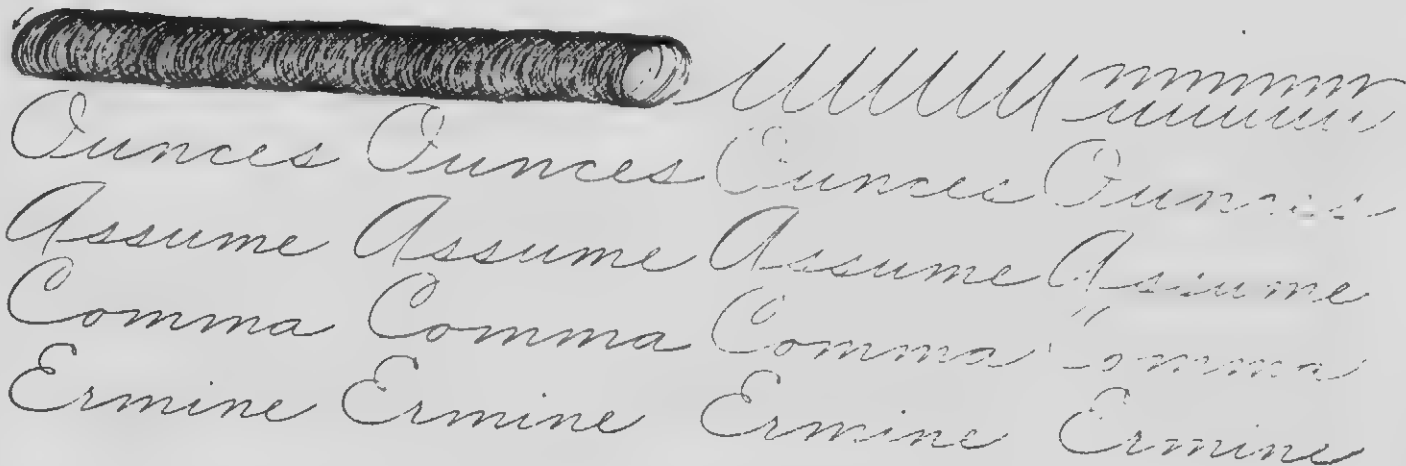 Ounces Ounces Ounces Ounces
Assume Assume Assume Assume
Comma Comma Comma Comma
Ermine Ermine Ermine Ermine